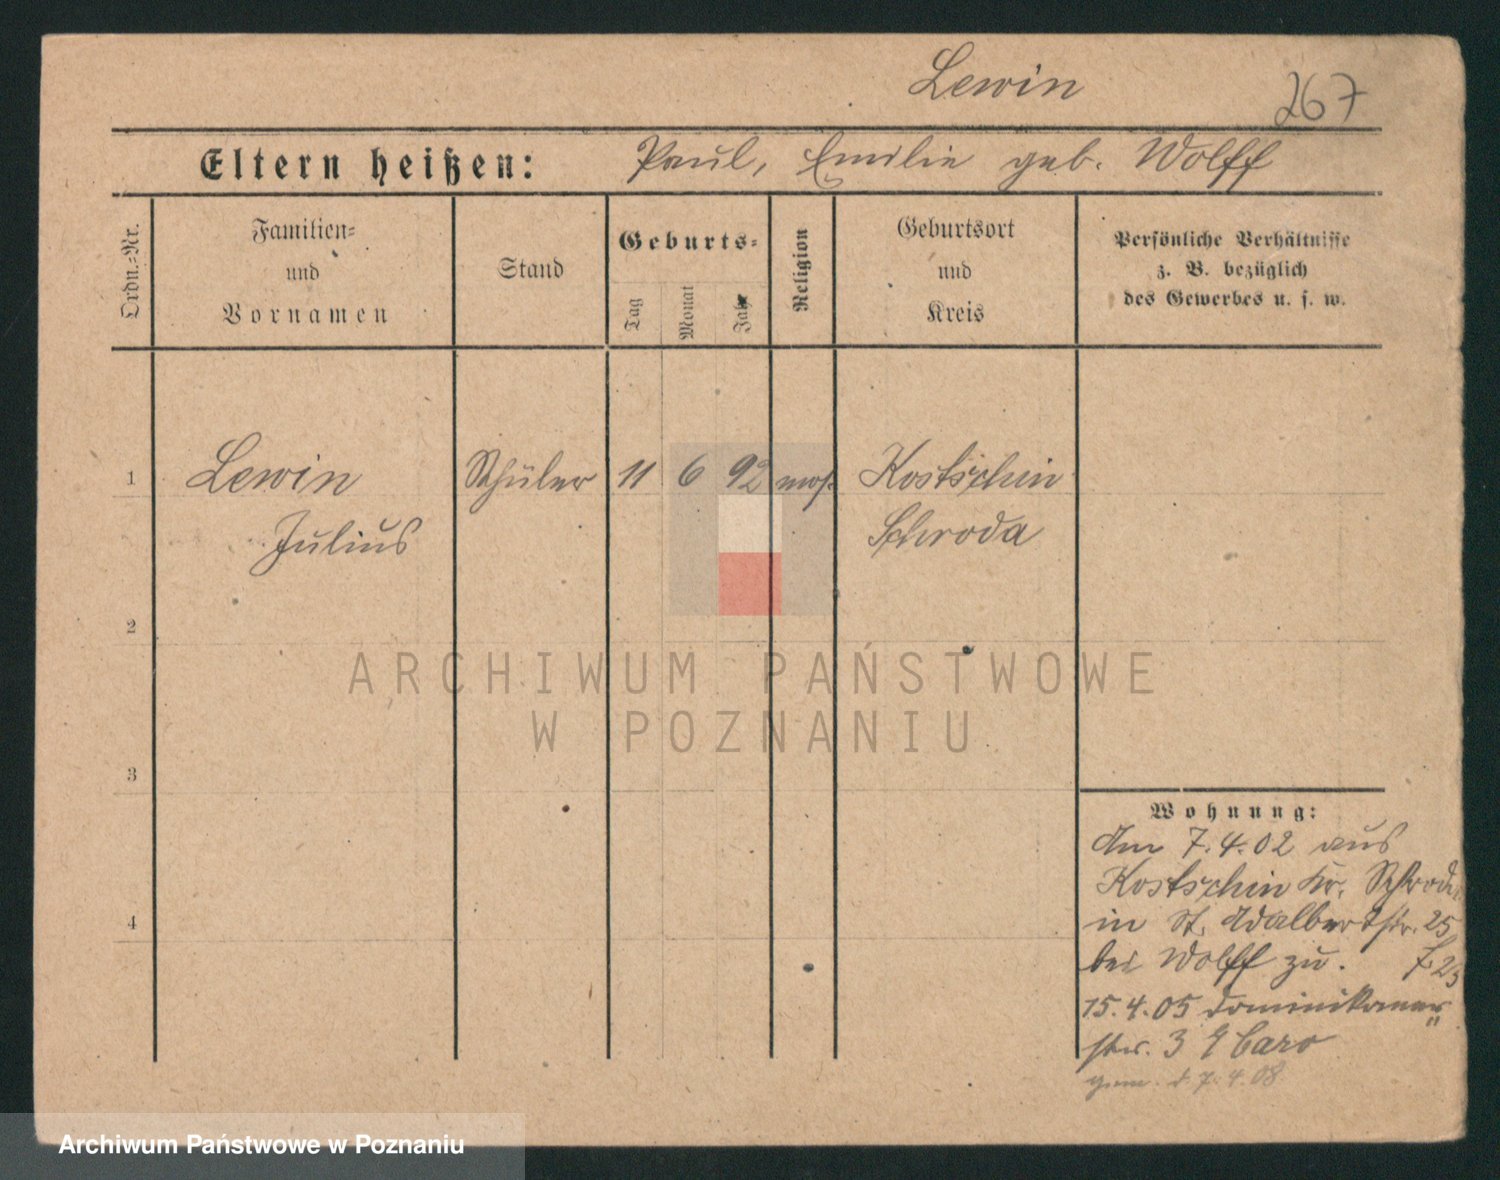 Lewin
267
Eltern heißen: Paul, Emilie geb. Wolff
Ordn.-Nr.
Familien-
und
Vornamen
Stand
Geburts-
Tag
Monat
Jahr
Religion
Geburtsort
und
Kreis
Persönliche Verhältnisse
z. B. bezüglich
des Gewerbes u. s. w.
1 Lewin Schüler 11 6 92 mos. Kostschin
Julius Schroda
2
ARCHIWUM PAŃSTWOWE
W POZNANIU
3
Wohnung:
Am 7.4.02 aus
Kostschin Kr. Schroda
4
in St. Adalbertstr. 25
bei Wolff zu.
15.4.05 Dominikaner
str. 3 Caro
7.4.08
Archiwum Państwowe w Poznaniu